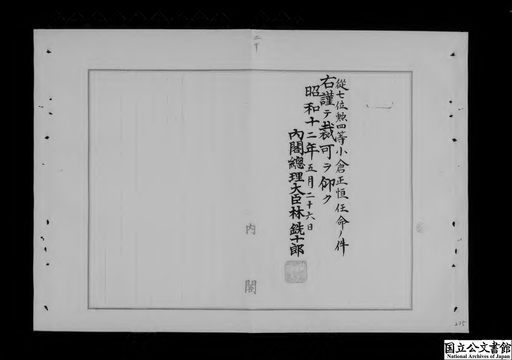 従七位勲四等小倉正恒任命ノ件
右謹テ裁可ヲ仰ク
昭和十二年五月二十六日
内閣總理大臣林銑十郎
内閣
国立公文書館
National Archives of Japan